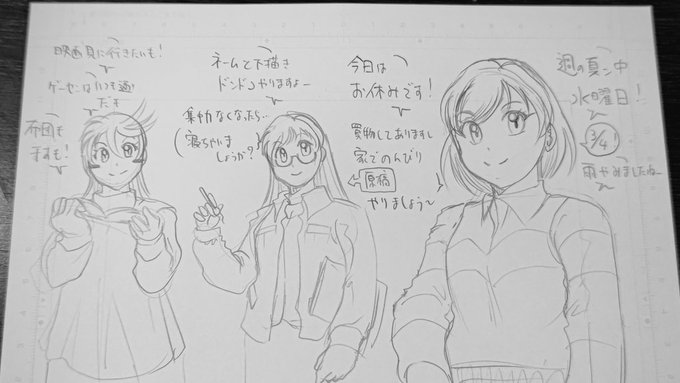 週の真ン中
水曜日!
3/4!
雨やみましたねー
今日は
お休みです!
買物してありますし
家でのんびり
原稿
やりましょう〜
ネームと下描き
ドンドンやりますよー
集中力なくなったら…
寝ちゃいま
しょうか?
映画見に行きたいも!
ゲーセンはいつも通
だす
布団も
干すも!